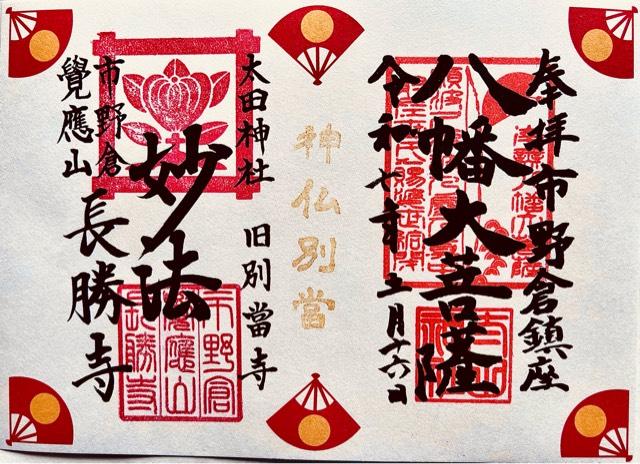 奉拝市野倉鎮座
八幡大菩薩
令和七年十一月十六日
神仏別當
太田神社
旧別當寺
妙法
市野倉
覺應山
長勝寺
市野倉
覺應山
長勝寺